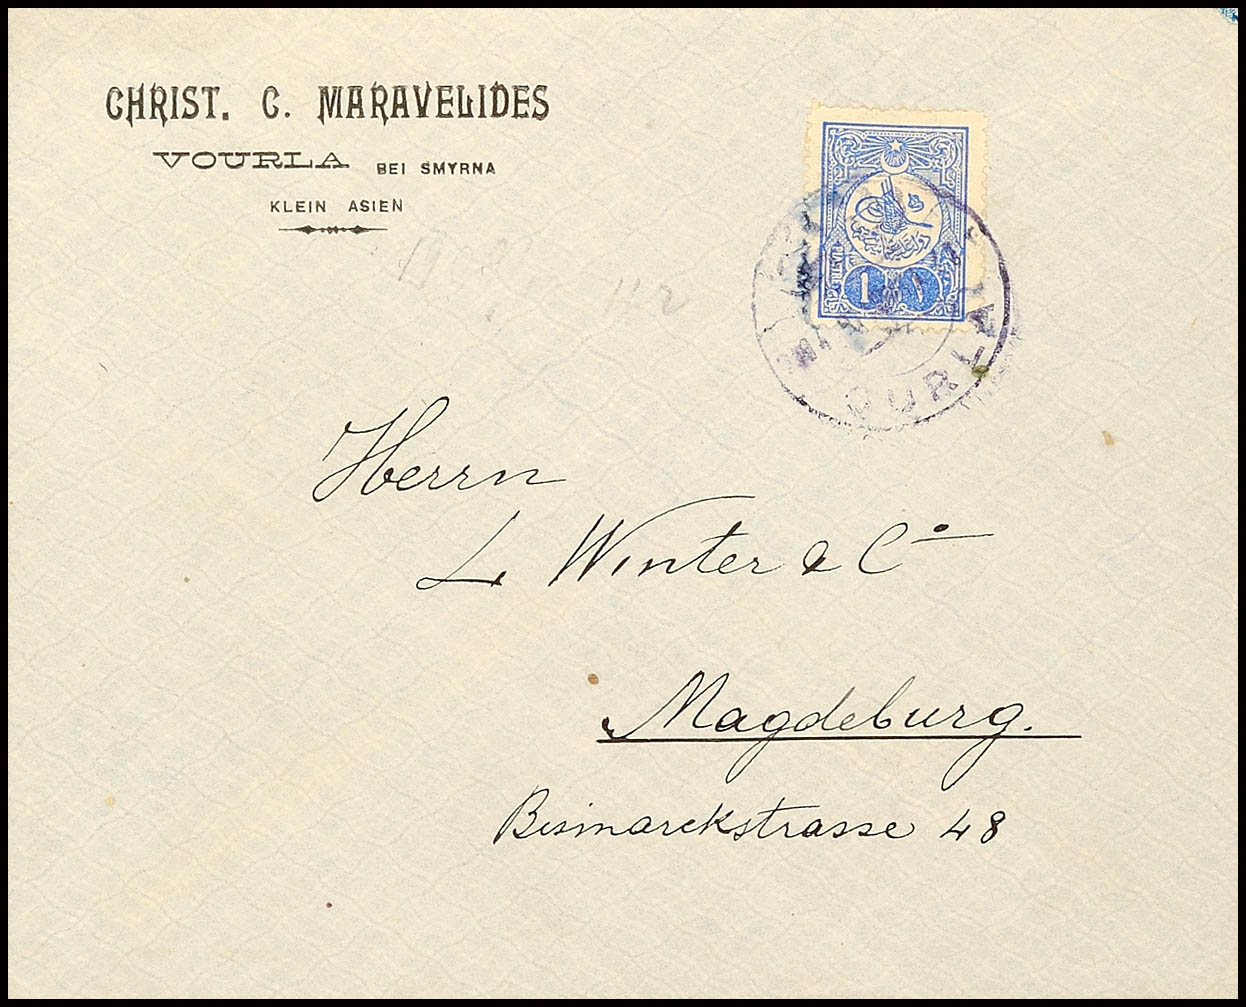 CHRIST. C. MARAVELIDES
VOURLA BEI SMYRNA
KLEIN ASIEN
1 ١
OURLA
Herrn
L Winter & Co
Magdeburg.
Bismarckstrasse 48